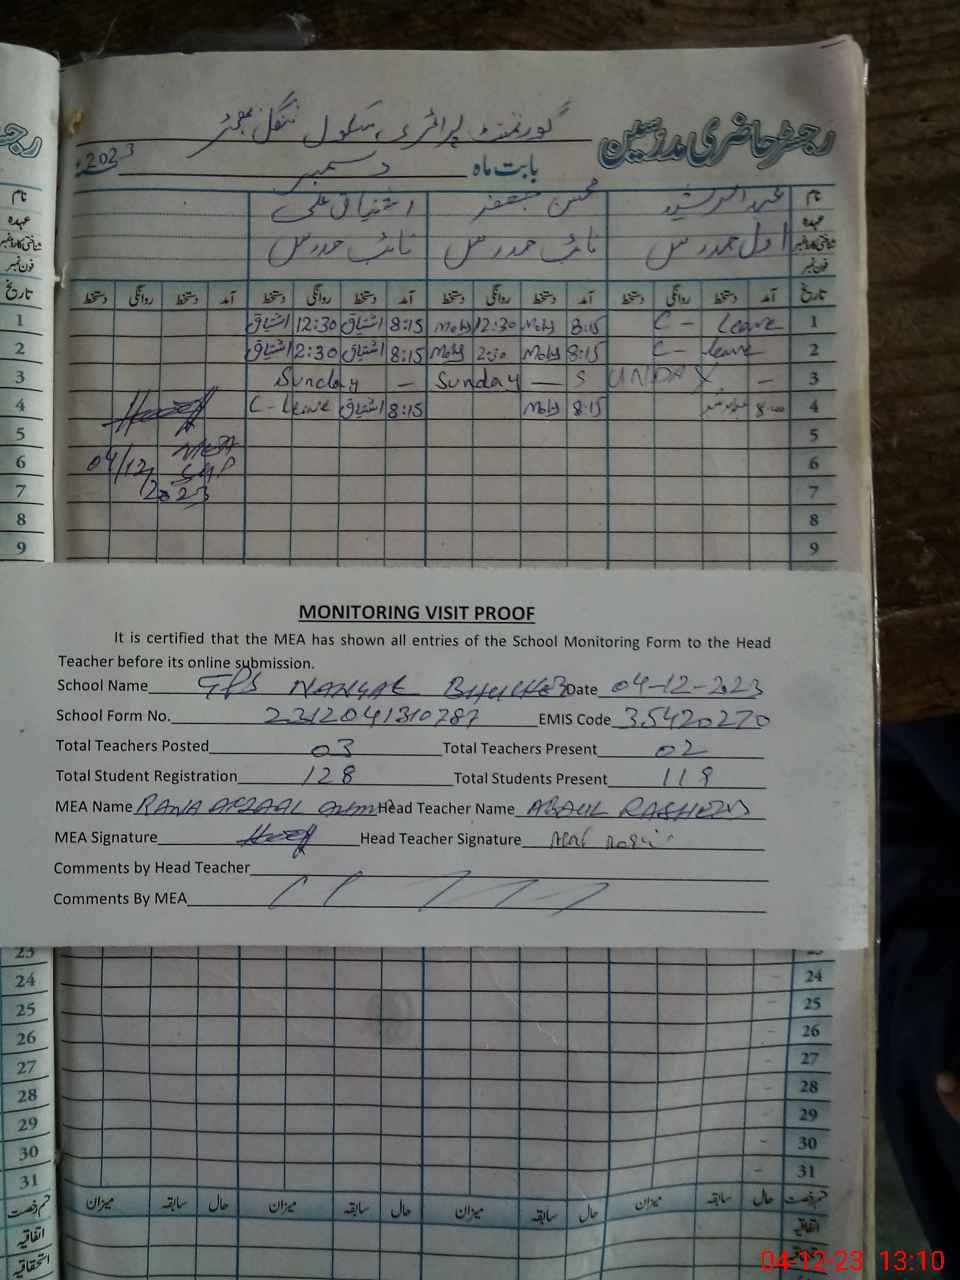 رجسٹر حاضری مدرسین
گورنمنٹ پرائمری سکول ننگل
بابت ماہ دسمبر 2023
نام
عہدہ
شناختی کارڈ نمبر
فون نمبر
عبدالرشید محسن اشتیاق علی
اول مدرس نائب مدرس نائب مدرس
تاریخ آمد دستخط روانگی دستخط آمد دستخط روانگی دستخط آمد دستخط روانگی دستخط آمد دستخط روانگی دستخط
1 C - Leave 8:15 Mohs 12:30 Mohs 8:15 اشتیاق 12:30 اشتیاق
2 C - Leave 8:15 Mohs 2:30 Mohs 8:15 اشتیاق 12:30 اشتیاق
3 SUNDAY — Sunday — Sunday —
4 8:00 8:15 Mohs 8:15 اشتیاق C - Leave
5
6
7
8
9
MEA
04/12/2023
MONITORING VISIT PROOF
It is certified that the MEA has shown all entries of the School Monitoring Form to the Head
Teacher before its online submission.
School Name GPS NANGAL Date 04-12-2023
School Form No. 2312041310787 EMIS Code 35420270
Total Teachers Posted 03 Total Teachers Present 02
Total Student Registration 128 Total Students Present 118
MEA Name RANA AFZAAL Head Teacher Name ABDUL RASHEED
MEA Signature Head Teacher Signature
Comments by Head Teacher
Comments By MEA
23
24
25
26
27
28
29
30
31
قسم رخصت حال سابقہ میزان حال سابقہ میزان حال سابقہ میزان حال سابقہ میزان
اتفاقیہ
استحقاقیہ
04-12-23 13:10